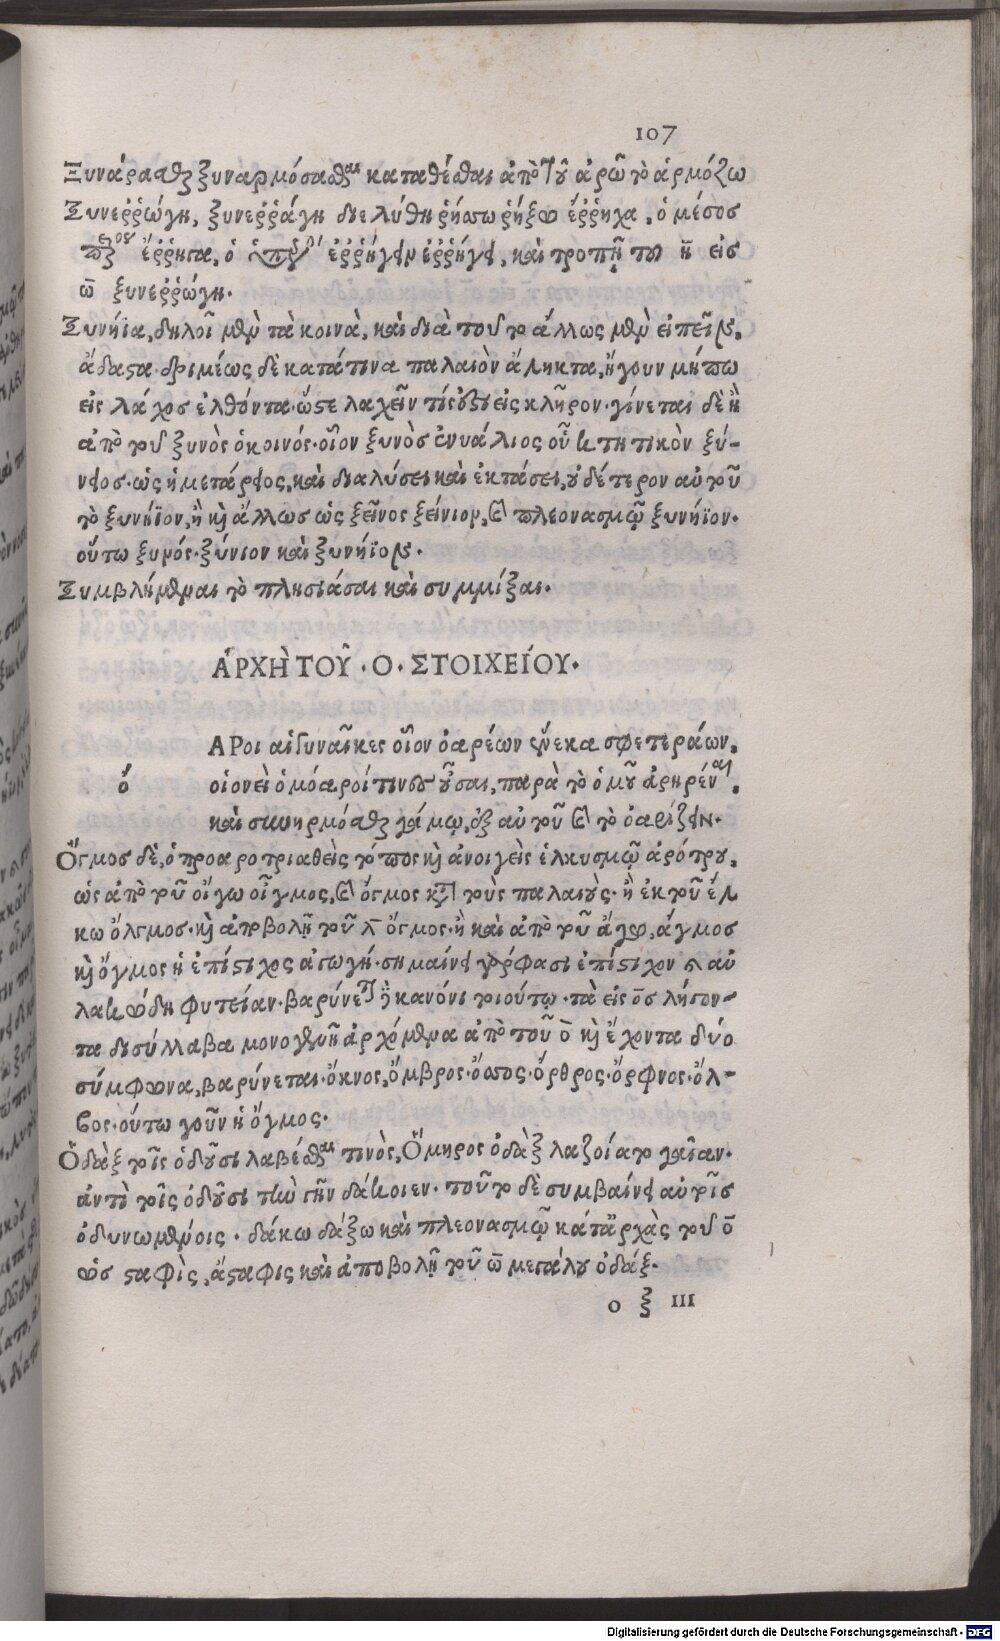 107
Ξυνάρασθαι ξυναρμόσασθαι καταθέσθαι ἀπὸ τοῦ ἀρῶ τὸ ἁρμόζω
Ξυνεῤῥώγη, ξυνεῤῥάγη διελύθη ῥήσσω ῥήξω ἔῤῥηχα, ὁ μέσος
ἔῤῥηγα, ὁ ἐῤῥήγειν ἐῤῥήγει, καὶ τροπῇ τοῦ η εἰς
ω ξυνεῤῥώγη.
Ξυνήϊα, δηλοῖ μὲν τὰ κοινὰ, καὶ διὰ τοῦτο ἄλλως μὲν εἰπεῖν,
ἄδαστα δριμέως δὲ κατάτινα παλαιὸν ἄληκτα, ἤγουν μήπω
εἰς λάχος ἐλθόντα. ὥστε λαχεῖν εἰς κλῆρον. γίνεται δὲ ἢ
ἀπὸ τοῦ ξυνὸς ὁ κοινός. οἷον ξυνὸς ἐνυάλιος οὗ κτητικὸν ξύ-
νειος. ὡς ἡμετάρειος, καὶ διαλύσει καὶ ἐκτάσει, οὐδέτερον αὐτοῦ
τὸ ξυνήϊον, ἢ καὶ ἄλλως ὡς ξεῖνος ξείνιον, καὶ πλεονασμῷ ξυνήϊον.
οὕτω ξυνός. ξύνιον καὶ ξυνήϊον.
Ξυμβλήμεναι τὸ πλησιάσαι καὶ συμμίξαι.
ἈΡΧῊ ΤΟΥ͂ . Ο . ΣΤΟΙΧΕΊΟΥ.
ΑΡοι αἱ γυναῖκες οἷον ὀαρέων ἕνεκα σφετεράων,
ὁ οἱονεὶ ὁμόαροί τινες οὖσαι, παρὰ τὸ ὁμοῦ ἀρηρέναι,
καὶ συνηρμόσθαι γάμῳ, ἐξ αὐτοῦ καὶ τὸ ὀαρίζειν.
Ὄγμος δὲ, ὁ προαροτριαθεὶς τόπος καὶ ἀνοιγεὶς ἑλκυσμῷ ἀρότρου,
ὡς ἀπὸ τοῦ οἴγω οἶγμος, καὶ ὄγμος κατὰ τοὺς παλαιούς. ἢ ἐκ τοῦ ἕλ
κω ὄλγμος. καὶ ἀποβολῇ τοῦ λ ὄγμος. ἢ καὶ ἀπὸ τοῦ ἄγω, ἄγμος
καὶ ὄγμος ἡ ἐπίστιχος ἀγωγή. σημαίνει γάρ φασι ἐπίστιχον αὐ
λακώδη φυτείαν. βαρύνεται κανόνι τοιούτῳ. τὰ εἰς ος λήγον-
τα δισύλλαβα μονογενῆ ἀρχόμενα ἀπὸ τοῦ ο καὶ ἔχοντα δύο
σύμφωνα, βαρύνεται. ὄκνος, ὄμβρος. ὄρθρος. ὄρφνος. ὄλ-
βος. οὕτω γοῦν ἡ ὄγμος.
Ὀδὰξ τοῖς ὀδοῦσι λαβέσθαι τινὸς, Ὅμηρος ὀδὰξ λαζοίατο γαῖαν.
ἀντὶ τοῖς ὀδοῦσι τὴν γῆν δάκοιεν. τοῦτο δὲ συμβαίνει αὐτοῖς
ὀδυνωμένοις. δάκω δάξω καὶ πλεονασμῷ κατἀρχὰς τοῦ ο
ὡς σταφὶς, ἄσταφις καὶ ἀποβολῇ τοῦ ω μεγάλου ὀδάξ.
ο ξ III
Digitalisierung gefördert durch die Deutsche Forschungsgemeinschaft - DFG